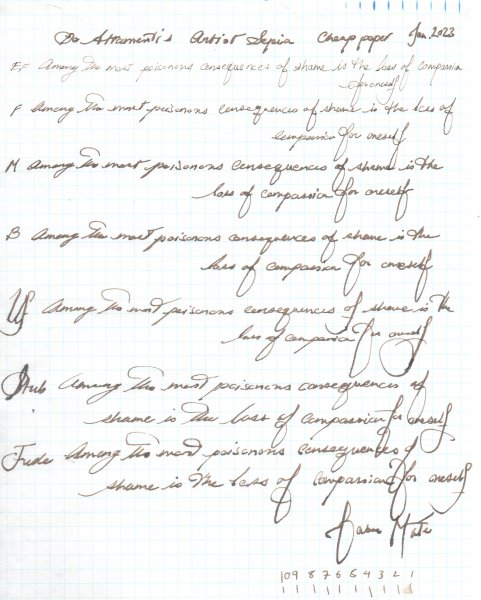 De Atramentis Artist Sepia Cheap paper Jan. 2023
EF Among the most poisonous consequences of shame is the loss of compassion
for oneself
F Among the most poisonous consequences of shame is the loss of
compassion for oneself
M Among the most poisonous consequences of shame is the
loss of compassion for oneself
B Among the most poisonous consequences of shame is the
loss of compassion for oneself
Among the most poisonous consequences of shame is the
loss of compassion for oneself
Stub Among the most poisonous consequences of
shame is the loss of compassion for oneself
Fude Among the most poisonous consequences of
shame is the loss of compassion for oneself
Gabor Maté
10 9 8 7 6 5 4 3 2 1